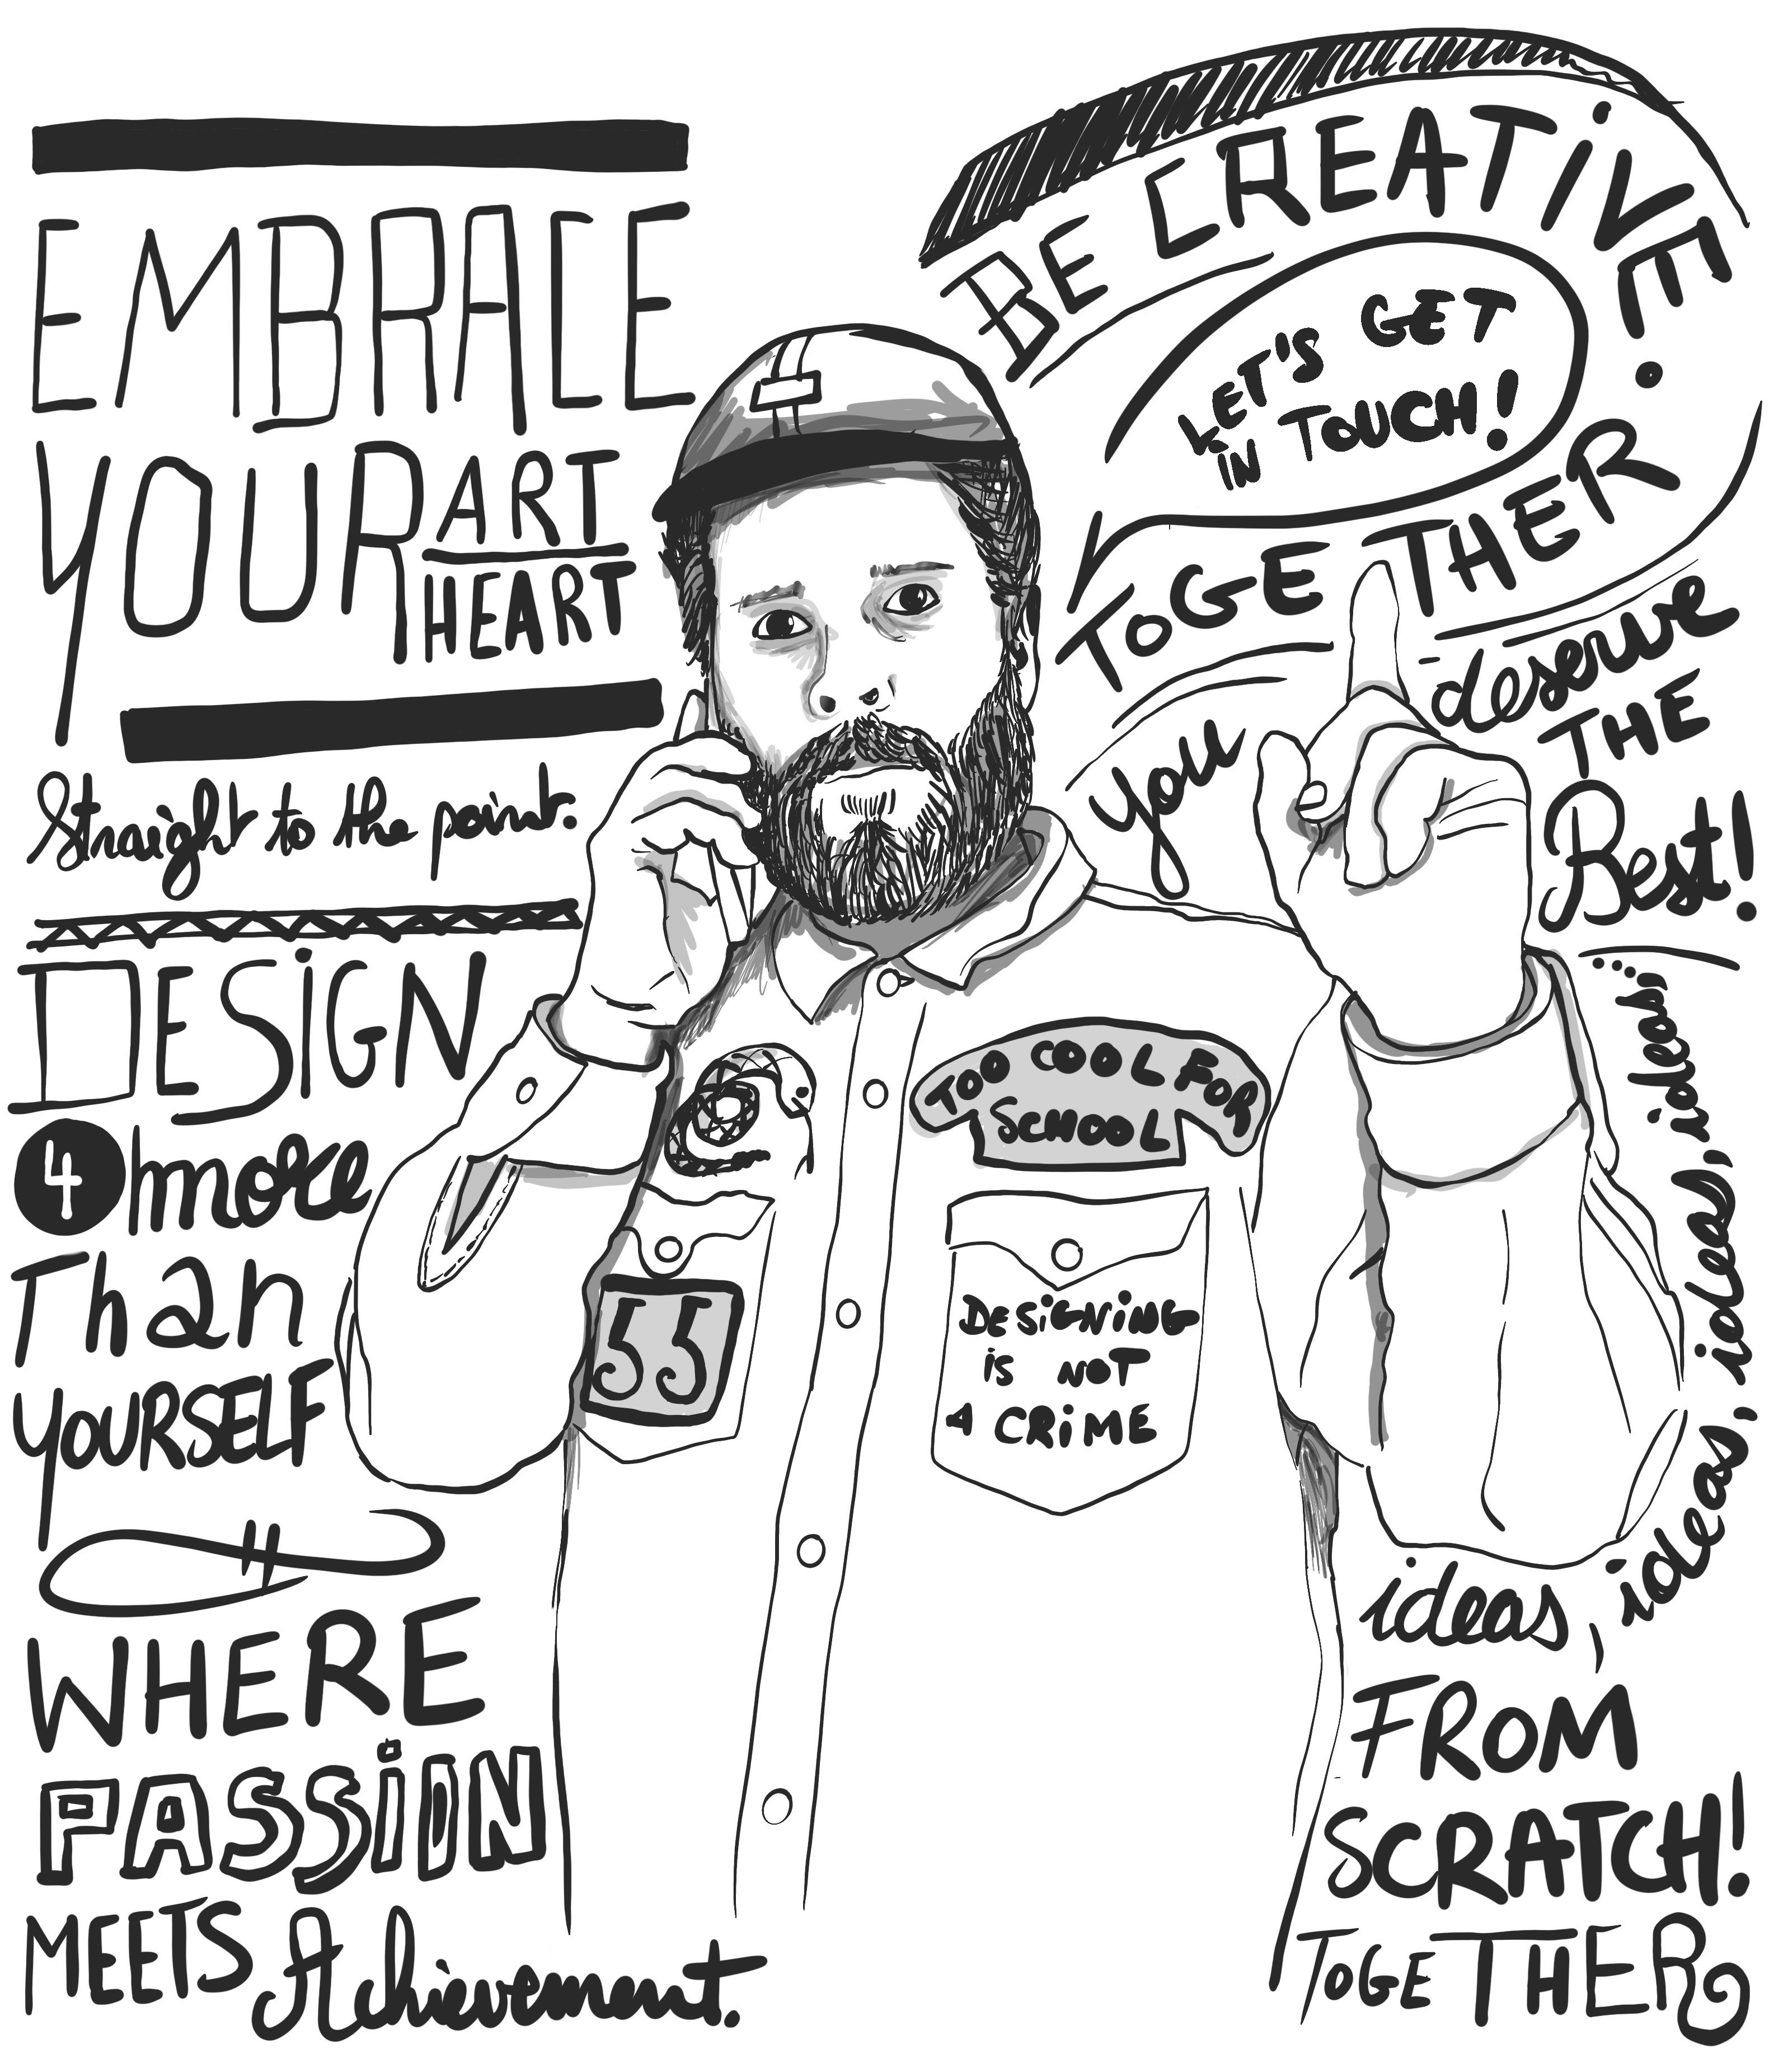 EMBRACE
YOUR ART
HEART
Straight to the point.
DESiGN
4 more
Than
YOURSELF
WHERE
PASSiON
MEETS Achievement.
BE CREATiVE.
LET'S GET
IN TOUCH!
TOGETHER.
You deserve
THE
Best!
TOO COOL FOR
SCHOOL
55
DESiGNiNG
iS NOT
A CRiME
ideas, ideas, ideas, ideas, ideas, ideas, ideas...
FROM
SCRATCH!
TOGETHER